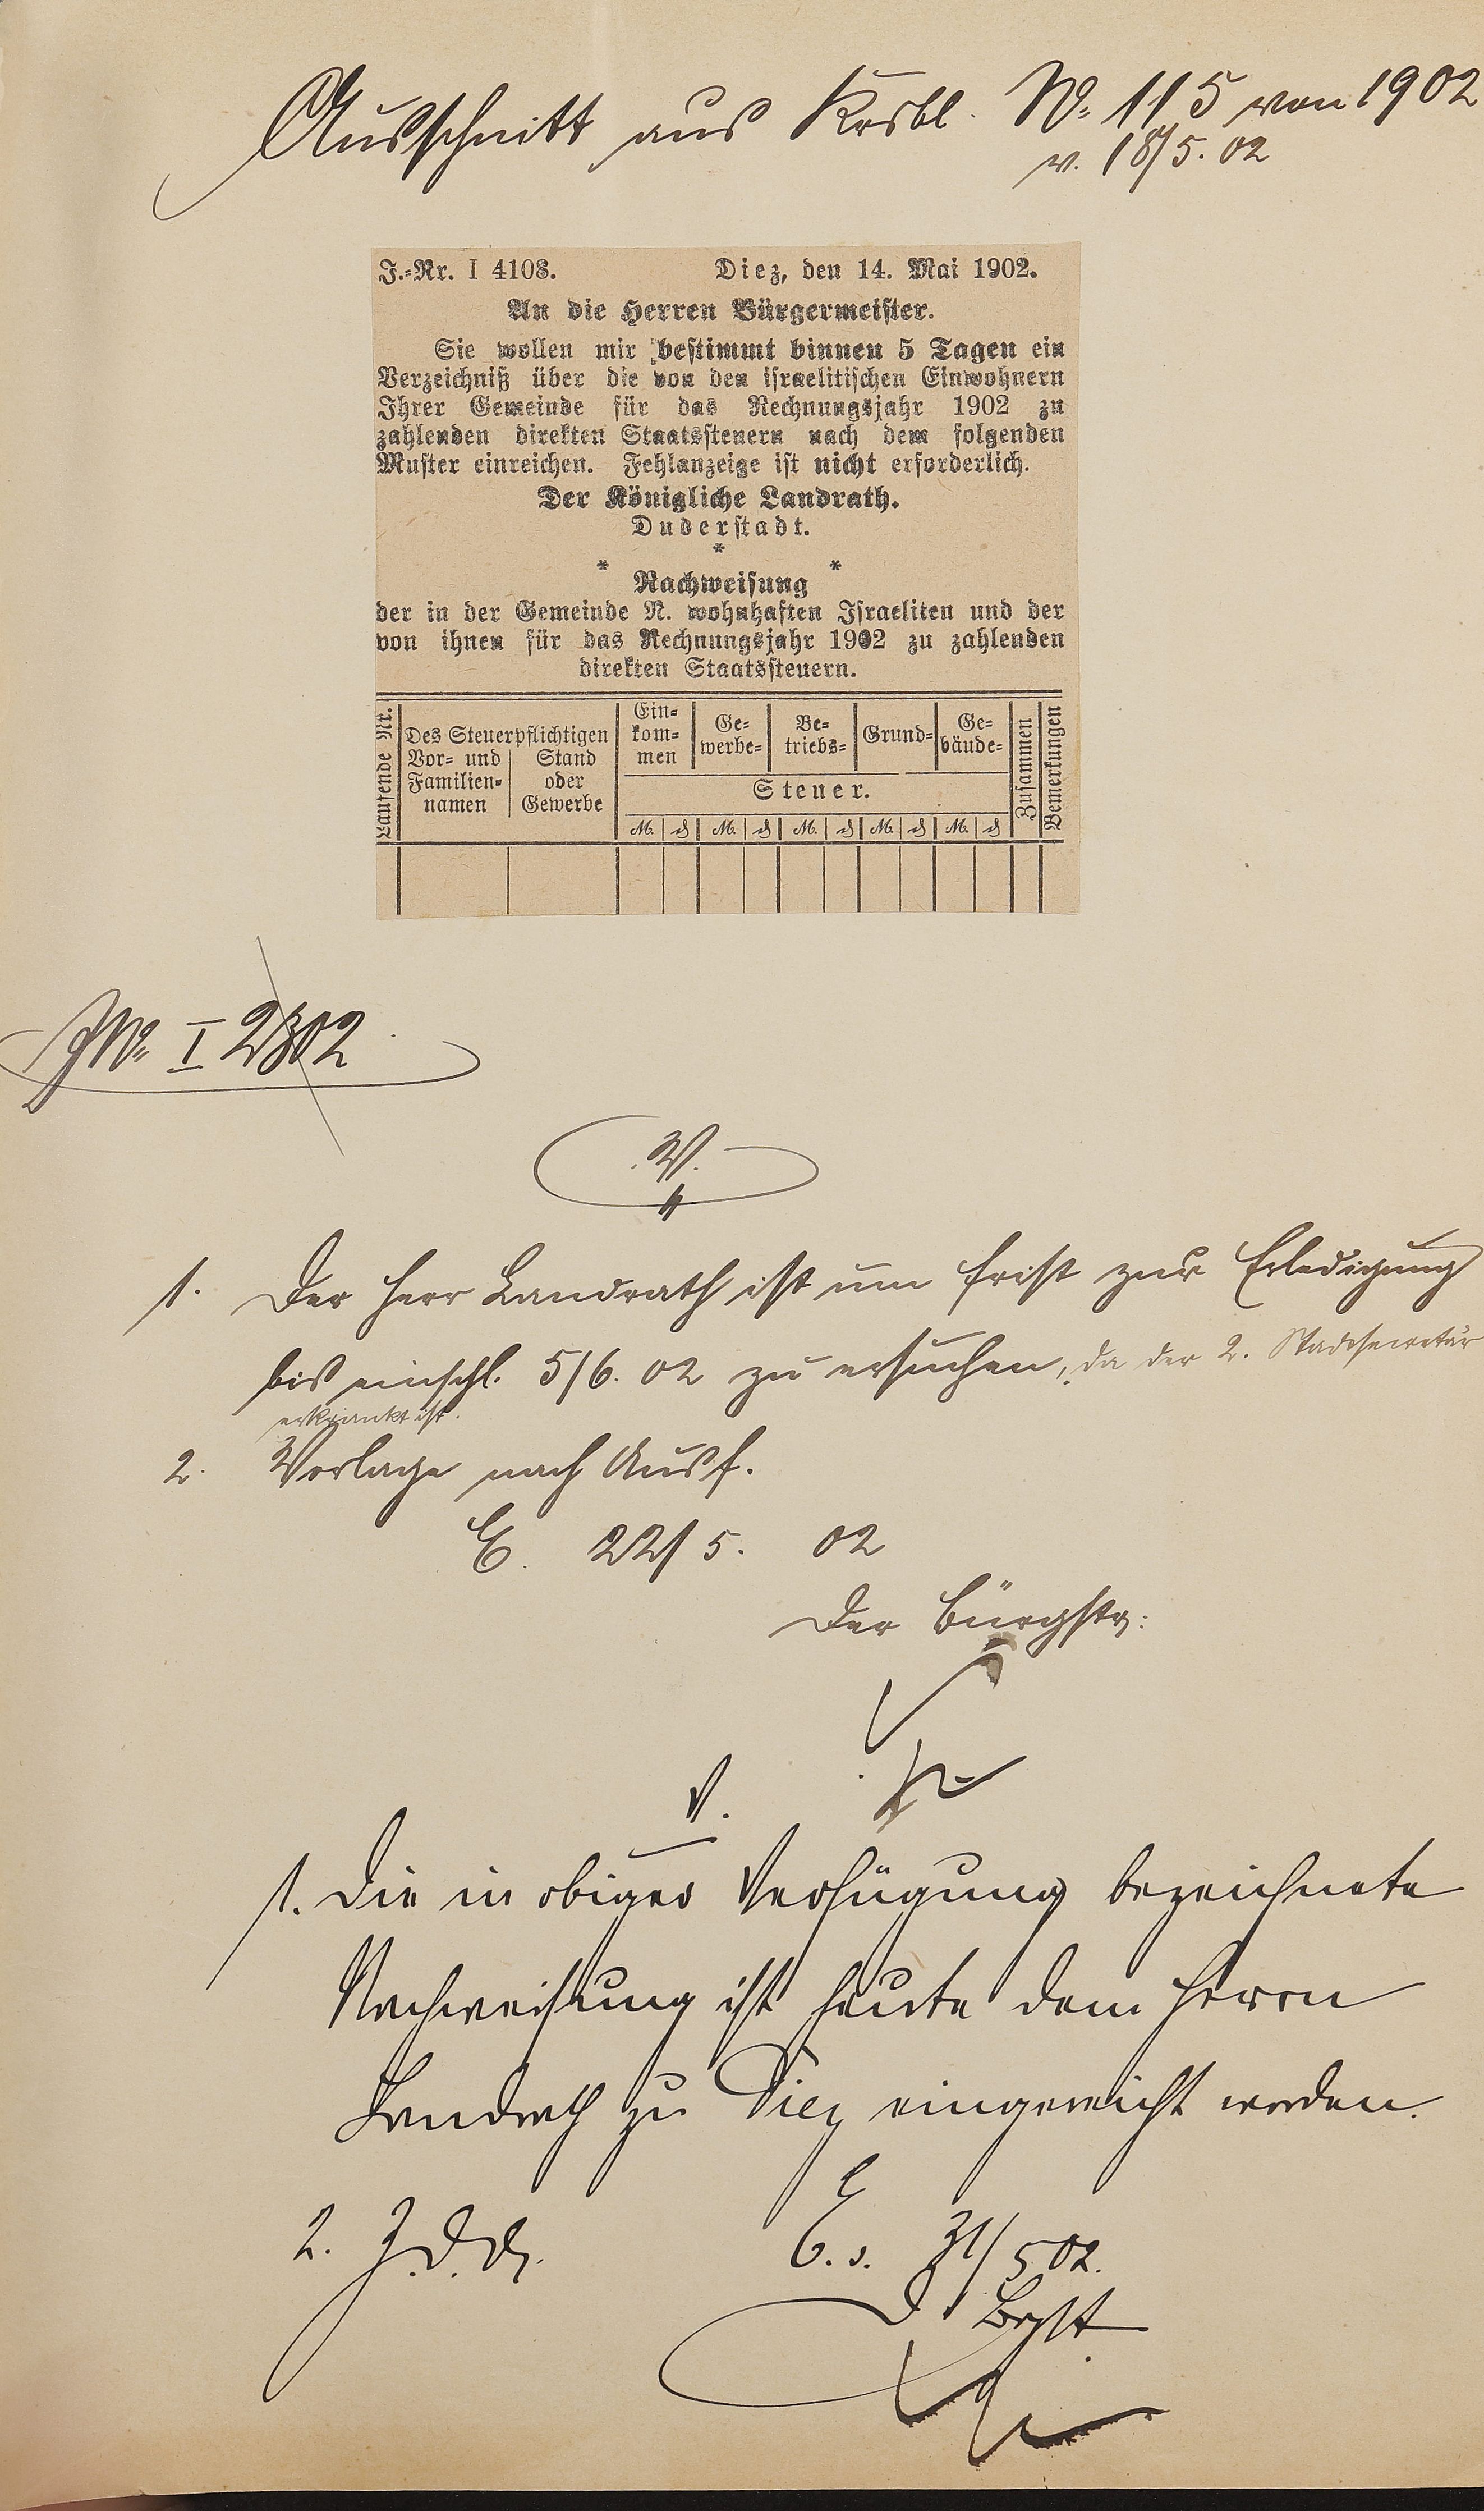 Ausschnitt aus Krsbl. No. 115 von 1902
v. 18/5. 02
J.-Nr. I 4103. Diez, den 14. Mai 1902.
An die Herren Bürgermeister.
Sie wollen mir bestimmt binnen 5 Tagen ein
Verzeichniß über die von den israelitischen Einwohnern
Ihrer Gemeinde für das Rechnungsjahr 1902 zu
zahlenden direkten Staatssteuern nach dem folgenden
Muster einreichen. Fehlanzeige ist nicht erforderlich.
Der Königliche Landrath.
Duderstadt.
*
* *
Nachweisung
der in der Gemeinde N. wohnhaften Israeliten und der
von ihnen für das Rechnungsjahr 1902 zu zahlenden
direkten Staatssteuern.
Laufende Nr.
Des Steuerpflichtigen
Vor- und
Familien-
namen
Stand
oder
Gewerbe
Ein-
kom-
men
Ge-
werbe-
Be-
triebs-
Grund-
Ge-
bäude-
Steuer.
M. ₰ M. ₰ M. ₰ M. ₰ M. ₰
Zusammen
Bemerkungen
JNo. I 2302
V.
1. Der Herr Landrath ist um Frist zur Erledigung
bis einschl. 5/6. 02 zu ersuchen, da der 2. Stadtsecretär
erkrankt ist.
2. Vorlage nach Ausf.
E. 22/5. 02
Der Bürgstr:
V.
1. Die in obiger Verfügung bezeichnete
Nachweisung ist heute dem Herrn
Landrath zu Diez eingereicht worden.
2. Z. d. A.
E. d. 31/5 02.
D. Bgstr